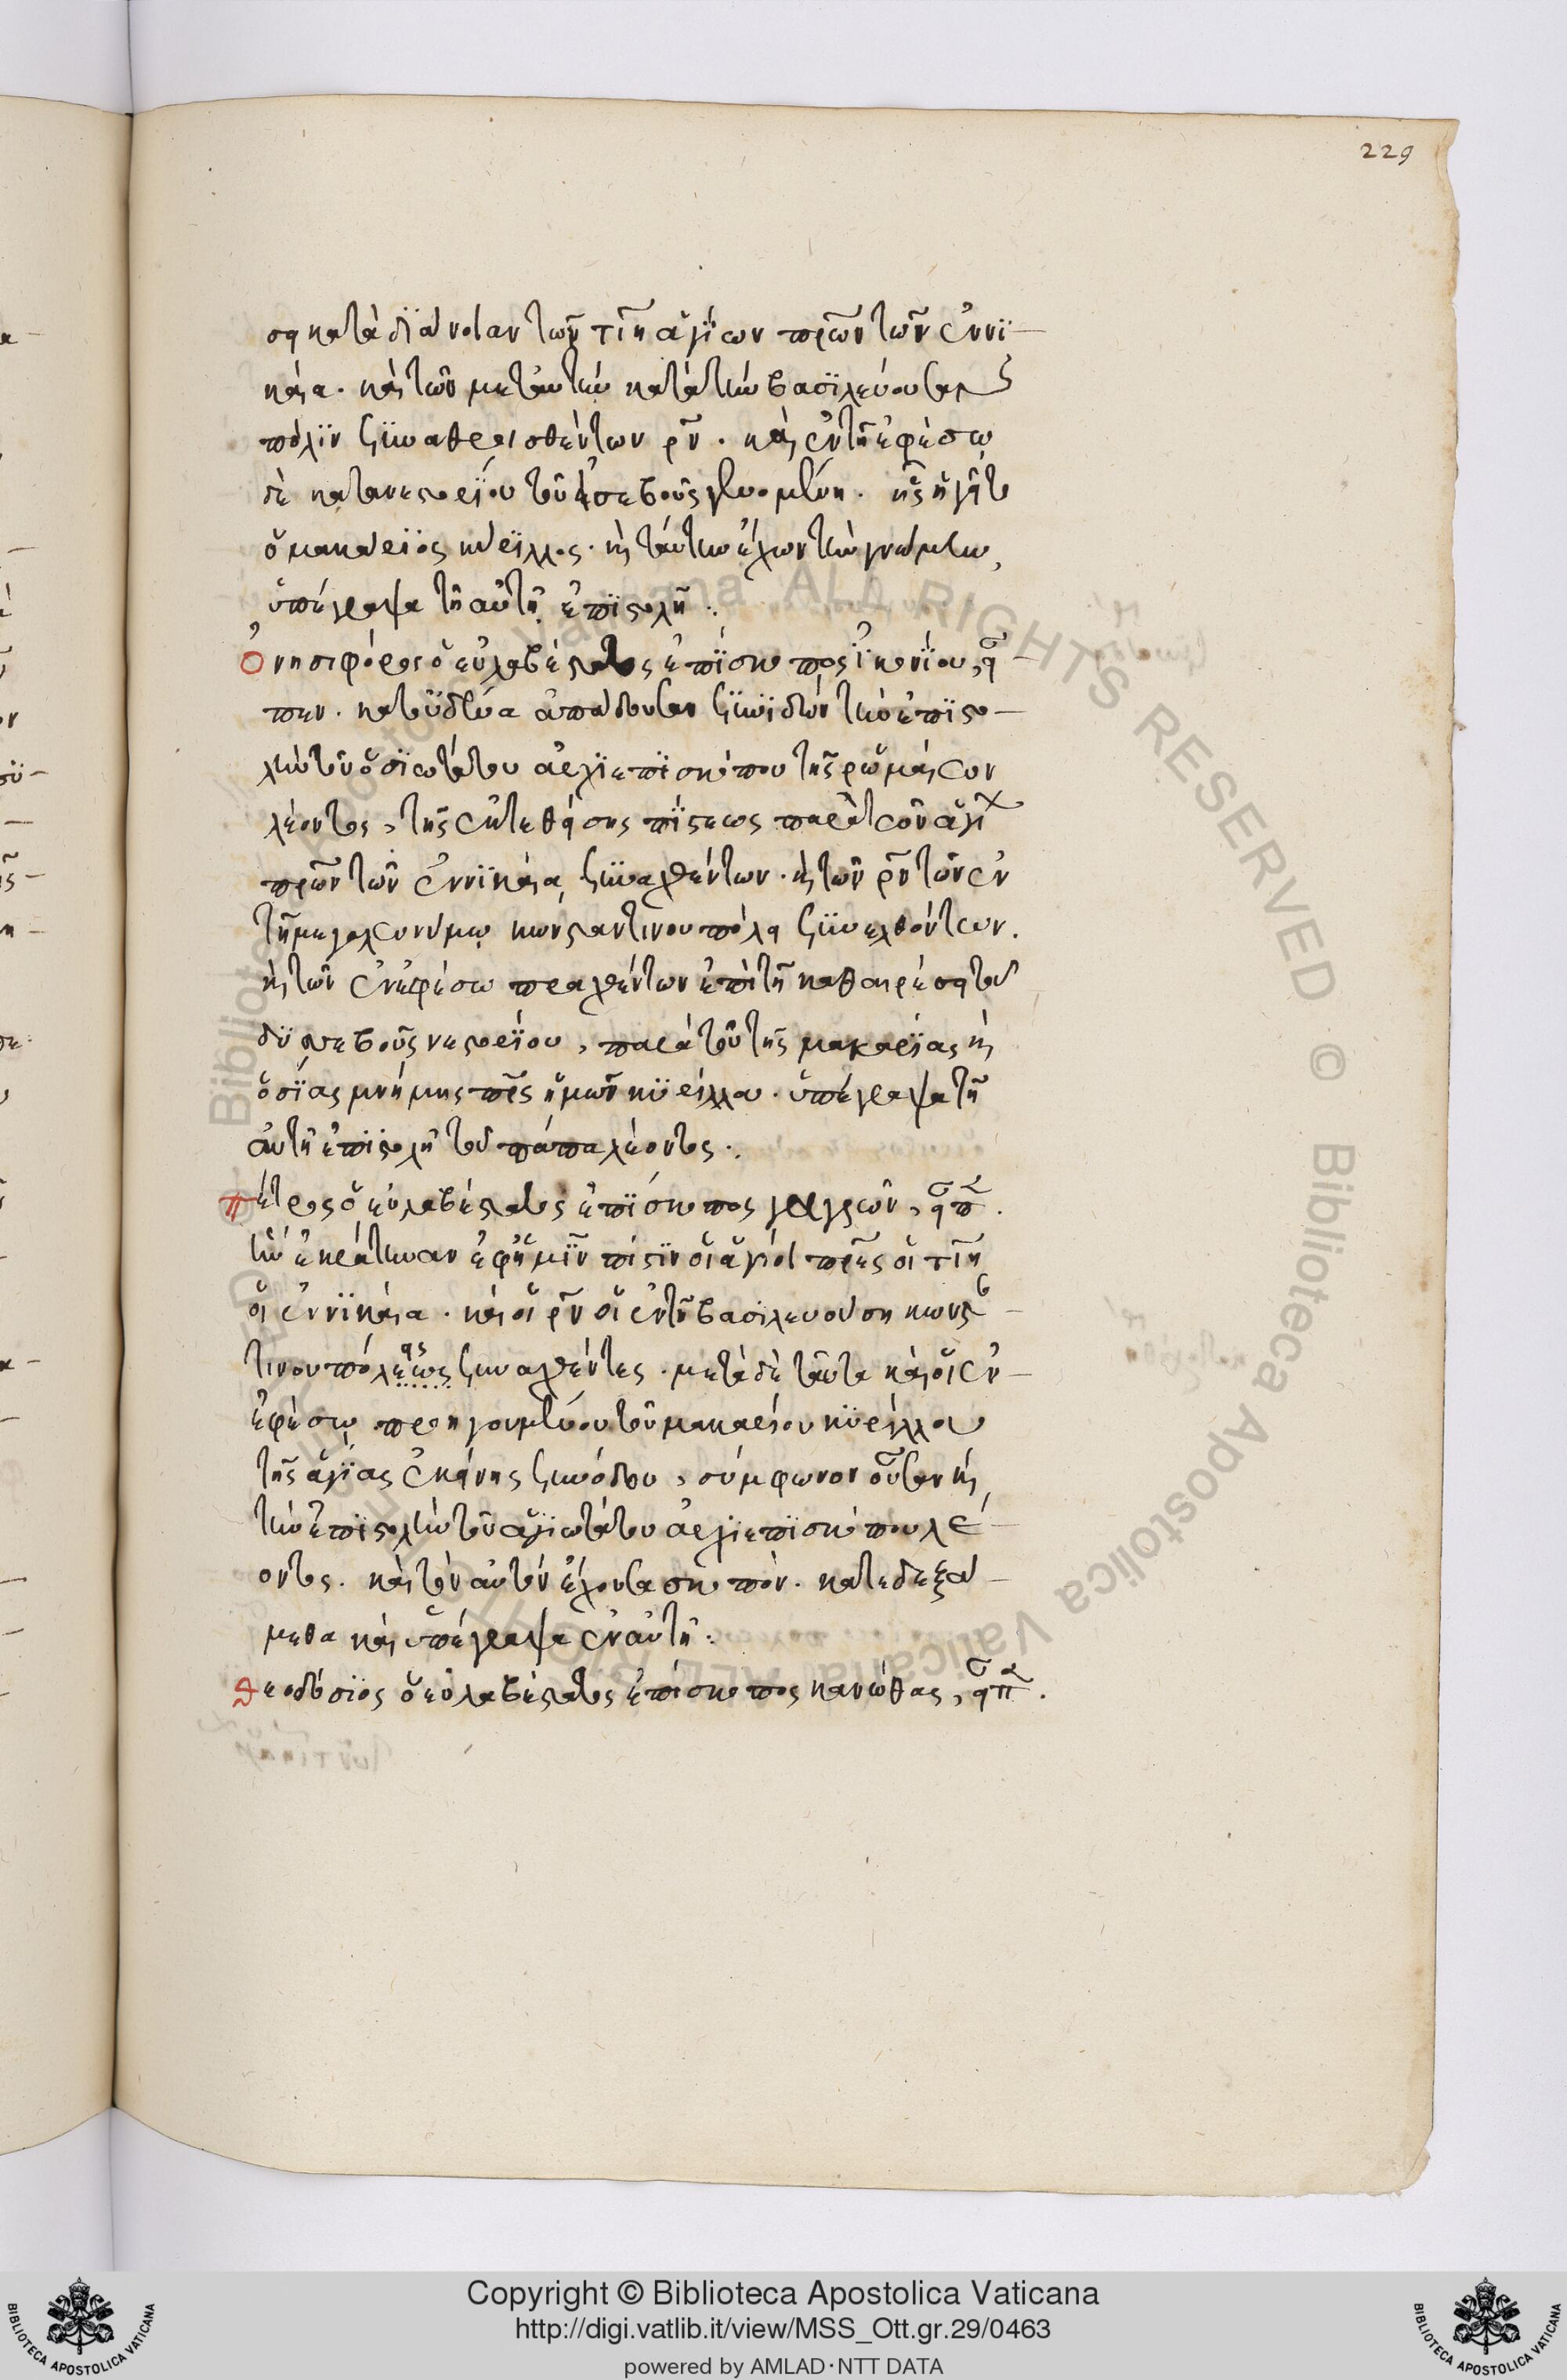 229
ση κατὰ διάνοιαν τῶν τιη ἁγίων πρων τῶν ἐν νι-
καία. καὶ τῶν μετ' αὐτὴν κατὰ τὴν βασιλεύουσαν
πόλιν συναθροισθέντων ρν. καὶ ἐν τῆ ἐφέσω
δὲ κατὰ νεστορίου τοῦ δυσεβοῦς γενομένη. ἧς ἡγεῖτο
ὁ μακάριος κύριλλος. καὶ ταύτην ἔχων τὴν γνώμην,
ὑπέγραψα τῆ αὐτῆ ἐπιστολῆ:
Ὀνησιφόρος ὁ εὐλαβέστατος ἐπίσκοπος ἰκονίου,
πεν. κατ' οὐδένα ἀπάδουσαν συνιδὼν τὴν ἐπιστο-
λὴν τοῦ ὁσιωτάτου ἀρχιεπισκόπου τῆς ῥωμαίων
λέοντος, τῆς ἐκτεθείσης πίστεως παρὰ τῶν ἁγι
πρων τῶν ἐν νικαία συναχθέντων. καὶ τῶν ρν τῶν ἐν
τῆ μεγαλωνύμω κωνσταντινουπόλει συνελθόντων.
καὶ τῶν ἐν ἐφέσω πραχθέντων ἐπὶ τῆ καθαιρέσει τοῦ
δυσσεβοῦς νεστορίου, παρὰ τοῦ τῆς μακαρίας καὶ
ὁσίας μνήμης πρς ἡμῶν κυρίλλου. ὑπέγραψα τῆ
αὐτῆ ἐπιστολῆ τοῦ πάπα λέοντος:
Πέτρος ὁ εὐλαβέστατος ἐπίσκοπος γαγγρῶν,
ἣν ἐκράτυναν ἐφ' ἡμῖν πίστιν οἱ ἅγιοι πρες οἱ τιη
οἱ ἐν νικαία. καὶ οἱ ρν οἱ ἐν τῆ βασιλευούση κωνστ-
τινουπόλεως συναχθέντες. μετὰ δὲ ταῦτα καὶ οἱ ἐν
ἐφέσω προηγουμένου τοῦ μακαρίου κυρίλλου
τῆς ἁγίας ἐκείνης συνόδου, σύμφωνον οὖσαν καὶ
τὴν ἐπιστολὴν τοῦ ἁγιωτάτου ἀρχιεπισκόπου λέ-
οντος. καὶ τὸν αὐτὸν ἔχουσα σκοπόν. κατεδεξά-
μεθα καὶ ὑπέγραψα ἐν αὐτῆ:
Θεοδόσιος ὁ εὐλαβέστατος ἐπίσκοπος κανώθας,
Copyright © Biblioteca Apostolica Vaticana
http://digi.vatlib.it/view/MSS_Ott.gr.29/0463
powered by AMLAD·NTT DATA